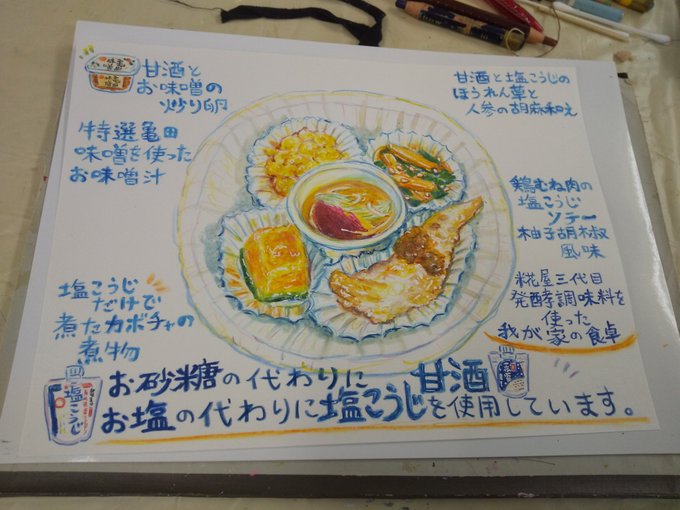 甘酒と
お味噌の
炒り卵
特選亀田
味噌を使った
お味噌汁
塩こうじ
だけで
煮たカボチャの
煮物
甘酒と塩こうじの
ほうれん草と
人参の胡麻和え
鶏むね肉の
塩こうじ
ソテー
柚子胡椒
風味
糀屋三代目
発酵調味料を
使った
我が家の食卓
お砂糖の代わりに甘酒
お塩の代わりに塩こうじを使用しています。
塩こうじ